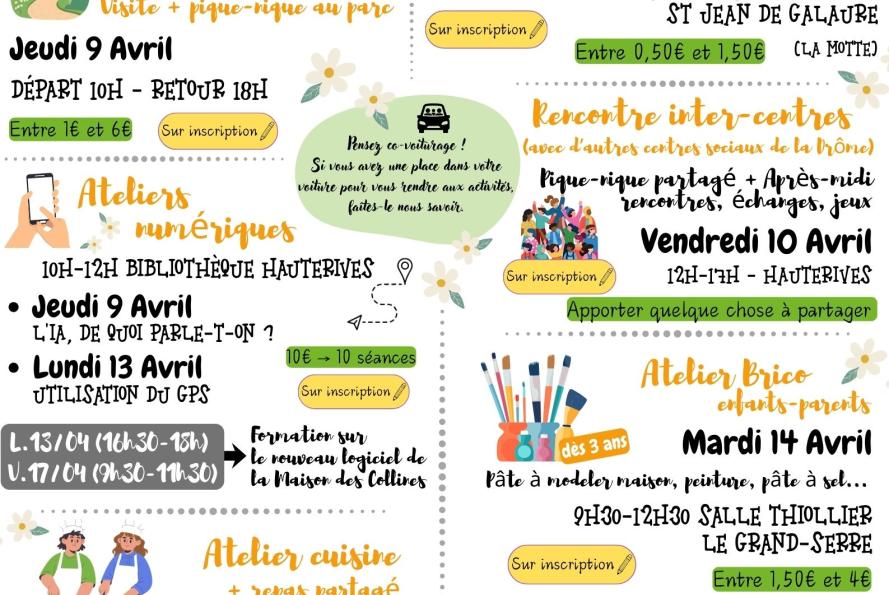 Visite + pique-nique au parc
Jeudi 9 Avril
DÉPART 10H - RETOUR 18H
Entre 1€ et 6€
Sur inscription
Ateliers
numériques
10H-12H BIBLIOTHÈQUE HAUTERIVES
• Jeudi 9 Avril
L'IA, DE QUOI PARLE-T-ON ?
• Lundi 13 Avril
UTILISATION DU GPS
10€ → 10 séances
Sur inscription
L.13/04 (16h30-18h)
V.17/04 (9h30-11h30)
Formation sur
le nouveau logiciel de
la Maison des Collines
Atelier cuisine
+ repas partagé
Pensez co-voiturage !
Si vous avez une place dans votre
voiture pour vous rendre aux activités,
faites-le nous savoir.
Sur inscription
ST JEAN DE GALAURE
(LA MOTTE)
Entre 0,50€ et 1,50€
Rencontre inter-centres
(avec d'autres centres sociaux de la Drôme)
Pique-nique partagé + Après-midi
rencontres, échanges, jeux
Vendredi 10 Avril
12H-17H - HAUTERIVES
Sur inscription
Apporter quelque chose à partager
Atelier Brico
enfants-parents
dès 3 ans
Mardi 14 Avril
Pâte à modeler maison, peinture, pâte à sel...
9H30-12H30 SALLE THIOLLIER
LE GRAND-SERRE
Sur inscription
Entre 1,50€ et 4€